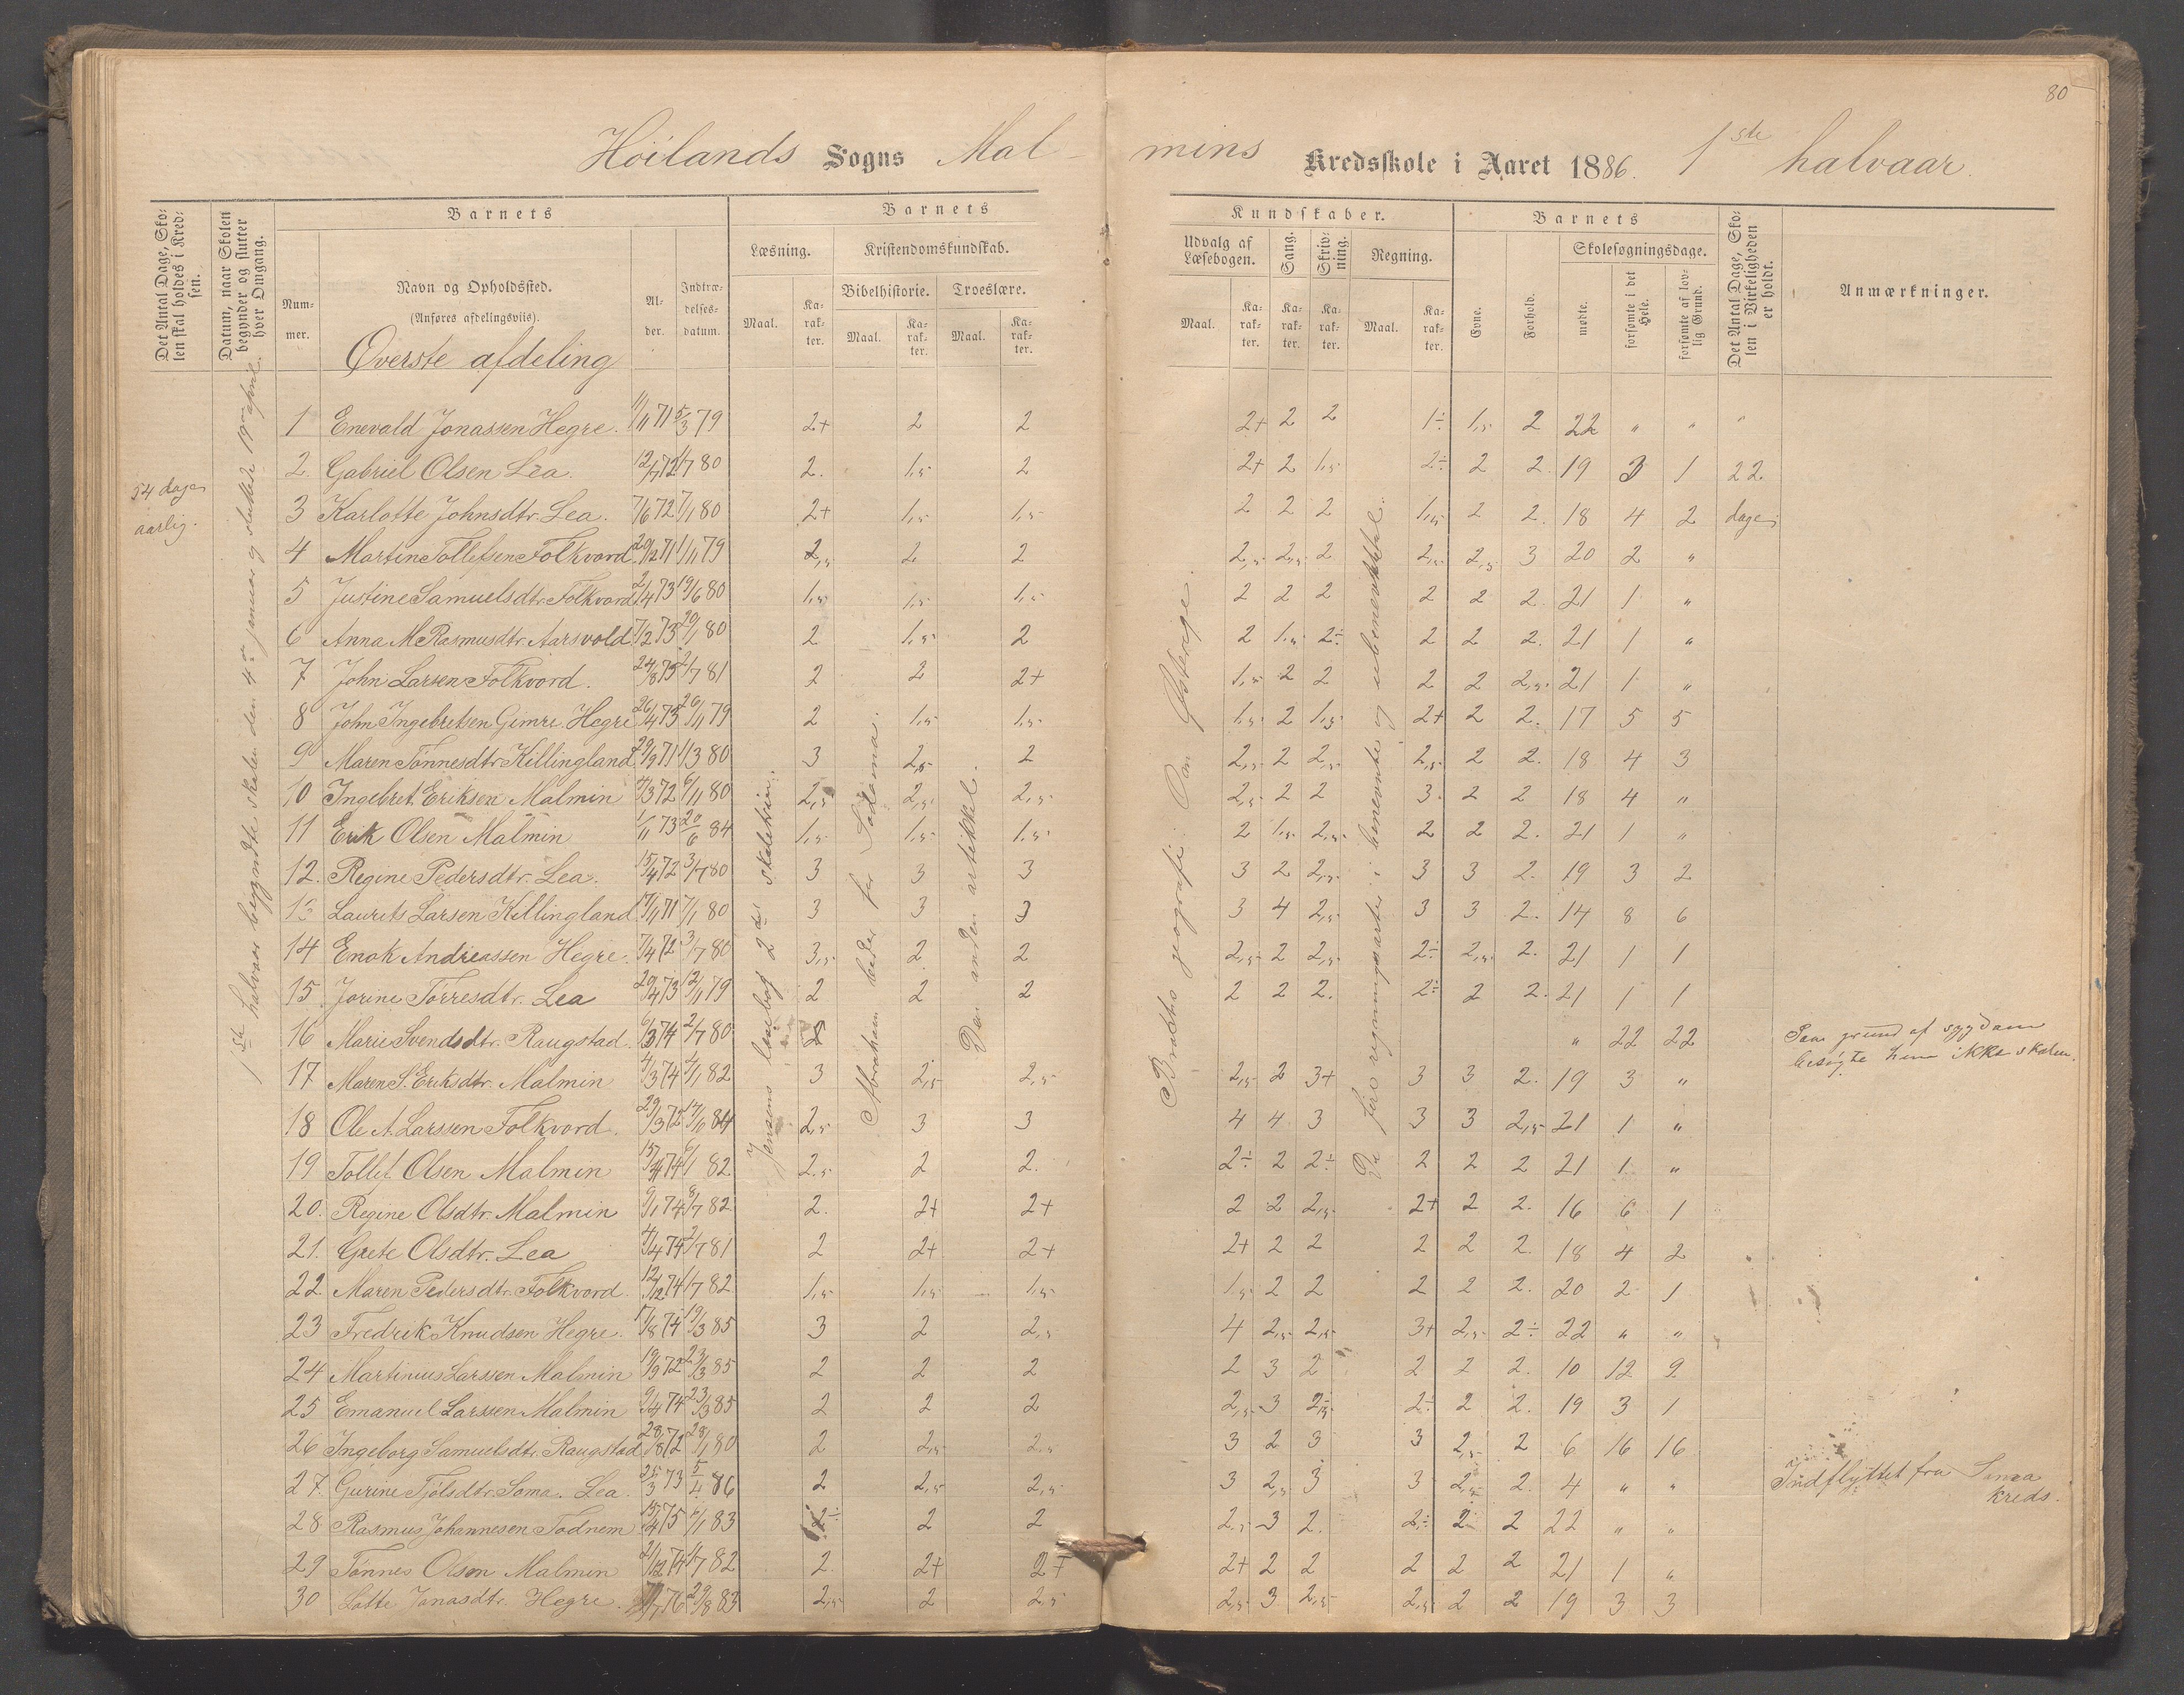 80
Höilands Sogns Malmins Kredsskole i Aaret 1886. 1ste halvaar.
Det Antal Dage, Skolen skal holdes i Kredsen.
Datum, naar Skolen begynder og slutter hver Omgang.
Barnets
Nummer.
Navn og Opholdssted.
(Anføres afdelingsviis).
Alder.
Indtrædelsesdatum.
Barnets Kundskaber.
Læsning.
Maal.
Karakter.
Kristendomskundskab.
Bibelhistorie.
Maal.
Karakter.
Troeslære.
Maal.
Karakter.
Udvalg af Læsebogen.
Maal.
Karakter.
Sang.
Karakter.
Skrivning.
Karakter.
Regning.
Maal.
Karakter.
Barnets
Evne.
Forhold.
Skolesøgningsdage.
mødte.
forsømte i det Hele.
forsømte af lovlig Grund.
Det Antal Dage, Skolen i Virkeligheden er holdt.
Anmærkninger.
Øverste afdeling
54 dage
aarlig.
1ste halvaar begyndte skolen den 4de januar og sluttede 19de april.
Jensens læsebog 2det skoletrin.
Abraham beder for Sodoma.
Den anden artikkel.
geografi: Om Østerige.
De fire regningsarter i benævnte og ubenævnte tal.
1 Enevald Jonassen Hegre. 11/11 71 5/3 79 2+ 2 2 2+ 2 2 1÷ 1,5 2 22 " " "
2. Gabriel Olsen Lea. 12/7 72 1/7 80 2. 1,5 2 2+ 2 1,5 2÷ 2 2 19 3 1 22
3 Karlotte Johnsdtr. Lea. 7/6 72 7/1 80 2+ 1,5 1,5 2 2 2 1,5 2 2. 18 4 2 dage
4 Martin Tollefsen Folkvord 20/2 71 1/11 79 2,5 2 2 2,5 2,5 2 2,5 2,5 3 20 2 "
5 Justine Samuelsdtr. Folkvord 2/4 73 19/6 80 1,5 1,5 1,5 2 2 2 2 2 2. 21 1 "
6 Anna M Rasmusdtr. Aarsvold 7/2 73 20/1 80 2 1,5 2 2 1,5 2÷ 2 2 2. 21 1 "
7 John Larsen Folkvord. 24/8 73 2/7 81 2 2 2+ 1,5 2 2 2 2 2,5 21 1 "
8 John Ingebretsen Gimre. Hegre 26/4 73 26/11 79 2 1,5 1,5 1,5 2 1,5 2+ 2 2. 17 5 5
9 Maren Tønnesdtr Killingland 29/9 71 1/3 80 3 2,5 2 2,5 2 2,5 2,5 2 2. 18 4 3
10 Ingebret Eriksen Malmin 4/3 72 6/11 80 2,5 2,5 2,5 2,5 2 2 3 2 2 18 4 "
11 Erik Olsen Malmin 1/11 73 20/6 84 1,5 1,5 1,5 2 1,5 2,5 2 2 2. 21 1 "
12. Regine Pedersdtr. Lea. 15/4 72 3/7 80 3 3 3 3 2 2,5 3 3 2. 19 3 2
13 Laurits Larsen Killingland 17/11 71 7/1 80 3 3 3 3 4 2,5 3 3 2. 14 8 6
14 Enok Andreassen Hegre. 7/4 72 3/7 80 3,5 2 2 2,5 2 2,5 2÷ 2,5 2. 21 1 1
15 Jorine Törresdtr. Lea 20/4 73 12/11 79 2 2 2 2 2 2. 2÷ 2 2. 21 1 1
16 Marie Svendsdtr. Raugstad. 6/3 74 2/7 80 " 22 22 Paa grund af sygdom
besøgte hun ikke skolen.
17 Maren S. Eriksdtr. Malmin 4/3 74 4/1 82 3 2,5 2,5 2,5 2 3+ 3 3 2. 19 3 "
18 Ole A. Larssen Folkvord. 29/3 72 14/6 84 2,5 3 3 4 4 3 3 3 2,5 21 1 "
19 Tollef Olsen Malmin 15/4 74 6/1 82 2.5 2 2. 2÷ 2 2÷ 2 2 2 21 1 "
20. Regine Olsdtr. Malmin 9/1 74 8/7 82 2. 2+ 2+ 2 2 2,5 2+ 2 2. 16 6 1
21. Grete Olsdtr. Lea 4/4 74 2/7 81 2 2+ 2+ 2+ 2 2 2 2 2. 18 4 2
22. Maren Pedersdtr. Folkvord. 12/12 74 1/7 82 1,5 1,5 1,5 1,5 2 2 2 2 2. 20 2 1
23 Fredrik Knudsen Hegre. 17/8 74 19/3 85 3 2 2,5 4 2,5 2,5 3+ 2,5 2÷ 22 " "
24 Martinus Larssen Malmin 19/9 72 23/3 85 2 2 2 2 3 2 2 2 2. 10 12 9
25 Emanuel Larssen Malmin 9/4 74 23/3 85 2 2 2 2,5 3 2,5 2÷ 2 2. 19 3 1
26 Ingeborg Samuelsdtr. Raugstad 28/8 72 28/1 80 2 2,5 2,5 3 2 3 3 2,5 2 6 16 16
27. Gurine Tjölsdtr. Soma. Lea. 25/3 73 5/4 86 2 2,5 2,5 3 2,5 3 3 2,5 2. 4 " " Indflyttet fra
kreds.
28 Rasmus Johannesen Todnem 15/4 75 6/1 83 2÷ 2 2 2,5 3 2. 2,5 2 2 22 " "
29 Tønnes Olsen Malmin 21/12 74 1/7 82 2. 2+ 2+ 2+ 2 2 2 2 2 21 1 "
30 Lotte Jonasdtr. Hegre. 76 29/8 83 2,5 2 2,5 2,5 3 2,5 2,5 2 2 19 3 3